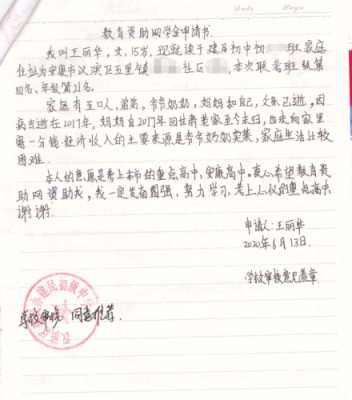 教育资助网学金申请书
我叫王丽华，女，15岁，现就读于建民初中初 班家庭
住址为安康市汉滨区五里镇 社区 ，本次联考班级第
四名，年级第21名。
家庭有五口人，弟弟，爷爷奶奶，妈妈和自己，父亲已逝，因
病去逝在2017年，妈妈自2017年回甘肃老家至今未归，也未向家里
寄一分钱，经济收入的主要来源是爷爷奶奶卖菜，家庭生活比较
困难。
本人的意愿是考上本市的重点高中，安康高中。衷心希望教育资
助网资助我，我一定发奋图强，努力学习，考上心仪的重点高中。
谢谢。
申请人：王丽华
2020年6月13日.
学校审核意见盖章
建民初级中
同意推荐.